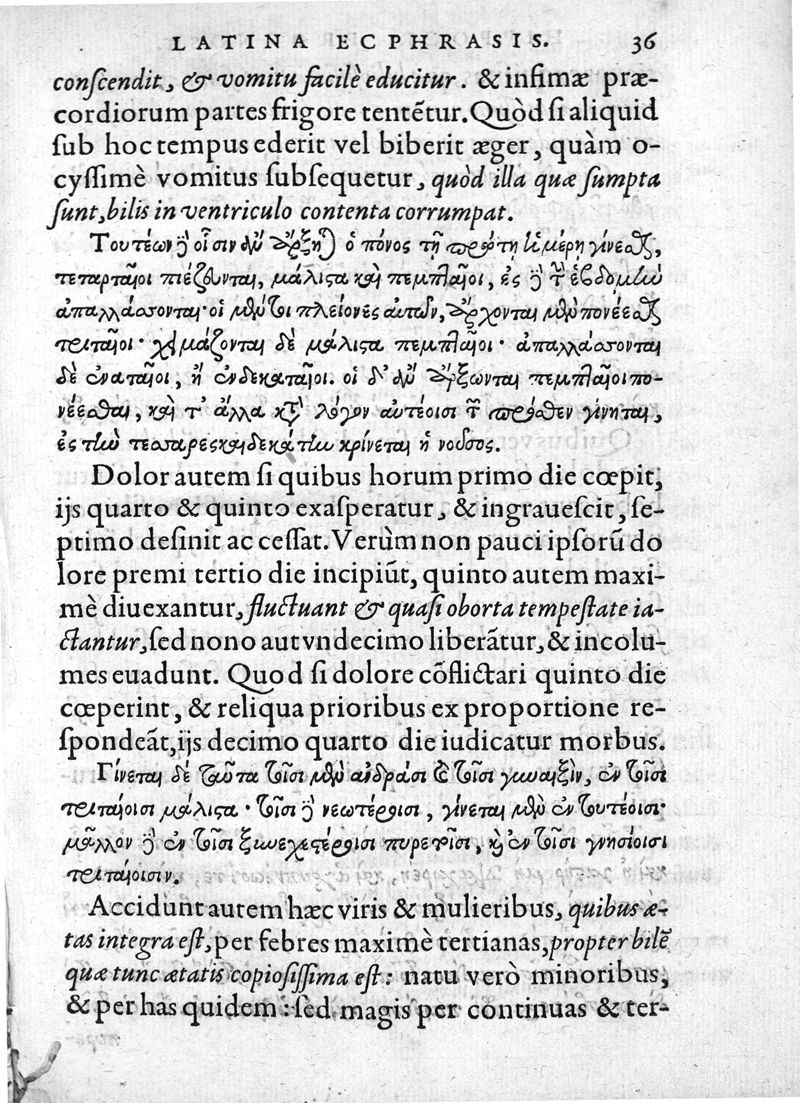 LATINA ECPHRASIS. 36
conſcendit, & vomitu facilè educitur. & infimæ præ-
cordiorum partes frigore tentẽtur. Quòd ſi aliquid
ſub hoc tempus ederit vel biberit æger, quàm o-
cyſſimè vomitus ſubſequetur, quòd illa quæ ſumpta
ſunt, bilis in ventriculo contenta corrumpat.
Τουτέων δὲ οἷσιν ἂν ἄρξηται ὁ πόνος τῇ πρώτῃ ἡμέρῃ γίνεσθαι,
τεταρταῖοι πιέζονται, μάλιστα καὶ πεμπταῖοι, ἐς δὲ τὴν ἑβδόμην
ἀπαλλάσσονται· οἱ μὲν τοι πλείονές αὐτῶν, ἄρχονται μὲν πονέεσθαι
τριταῖοι· χειμάζονται δὲ μάλιστα πεμπταῖοι· ἀπαλλάσσονται
δὲ ἐναταῖοι, ἢ ἑνδεκαταῖοι. οἱ δ' ἂν ἄρξωνται πεμπταῖοι πο-
νέεσθαι, καὶ τ' ἄλλα κατὰ λόγον αὐτέοισι τῶν πρόσθεν γίνηται,
ἐς τὴν τεσσαρεσκαιδεκάτην κρίνεται ἡ νοῦσος.
Dolor autem ſi quibus horum primo die cœpit,
ijs quarto & quinto exaſperatur, & ingraueſcit, ſe-
ptimo deſinit ac ceſſat. Verùm non pauci ipſorũ do
lore premi tertio die incipiũt, quinto autem maxi-
mè diuexantur, fluctuant & quaſi oborta tempeſtate ia-
ctantur, ſed nono aut vndecimo liberãtur, & incolu-
mes euadunt. Quod ſi dolore cõflictari quinto die
cœperint, & reliqua prioribus ex proportione re-
ſpondeãt, ijs decimo quarto die iudicatur morbus.
Γίνεται δὲ ταῦτα τοῖσι μὲν ἀνδράσι καὶ τοῖσι γυναιξὶν, ἐν τοῖσι
τριταίοισι μάλιστα· τοῖσι δὲ νεωτέροισι, γίνεται μὲν ἐν τουτέοισι·
μᾶλλον δὲ ἐν τοῖσι ξυνεχεστέροισι πυρετοῖσι, καὶ ἐν τοῖσι γνησίοισι
τριταίοισιν.
Accidunt autem hæc viris & mulieribus, quibus æ-
tas integra eſt, per febres maximè tertianas, propter bilẽ
quæ tunc ætatis copioſiſſima eſt: natu verò minoribus,
& per has quidem: ſed magis per continuas & ter-